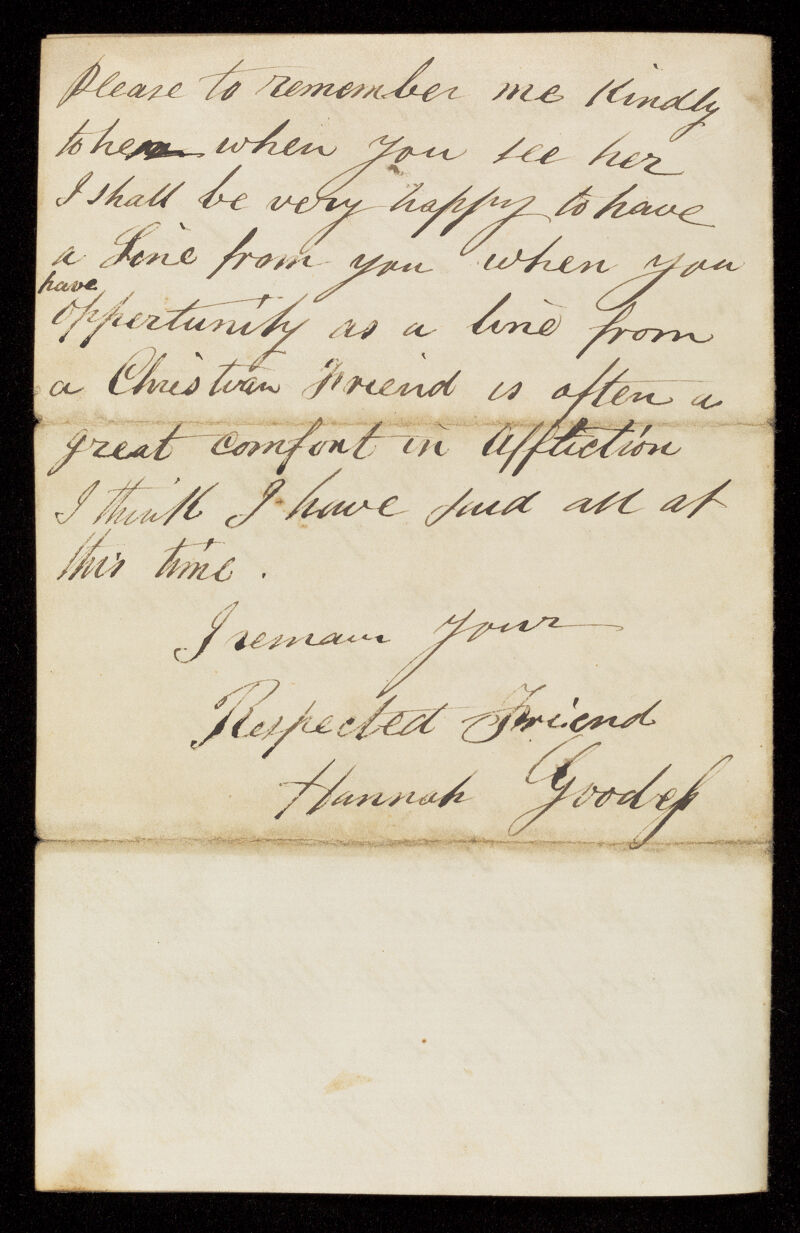 Please to remember me Kindly
to her when you see her
I shall be very happy to have
a Line from you when you
have
oppertunity as a line from
a Christian Friend is often a
great comfort in affliction
I think I have said all at
this time.
I remain your
Respected Friend
Hannah Goodess